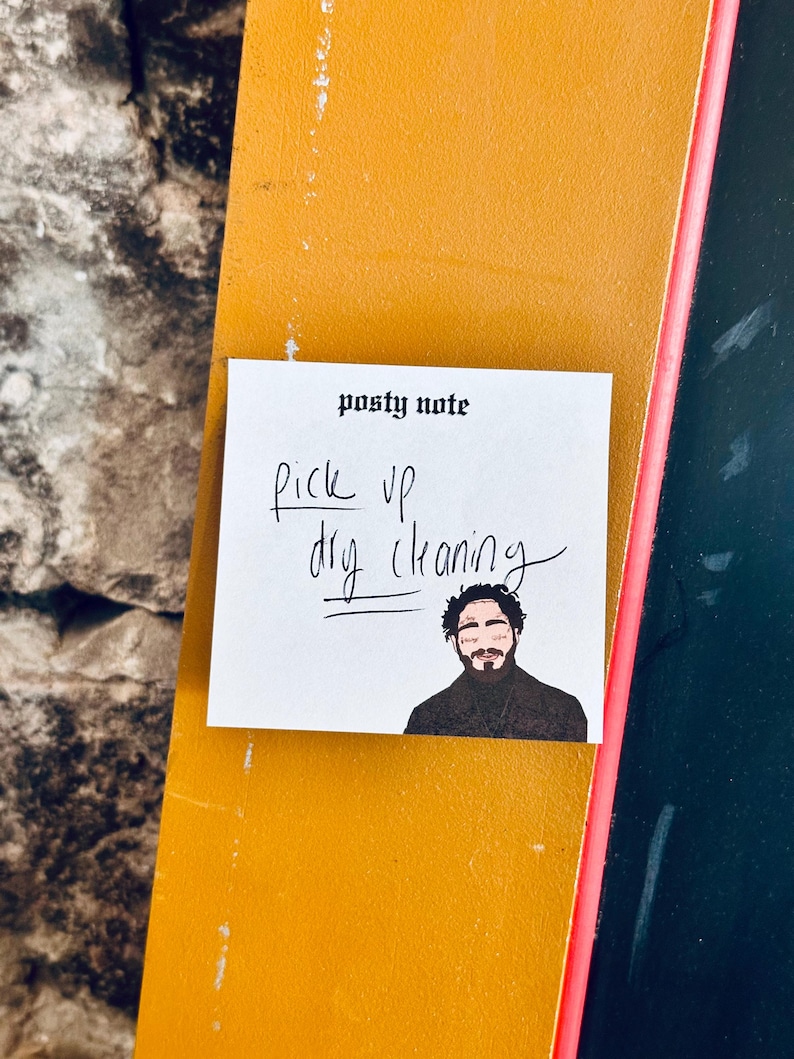 posty note
pick up
dry cleaning